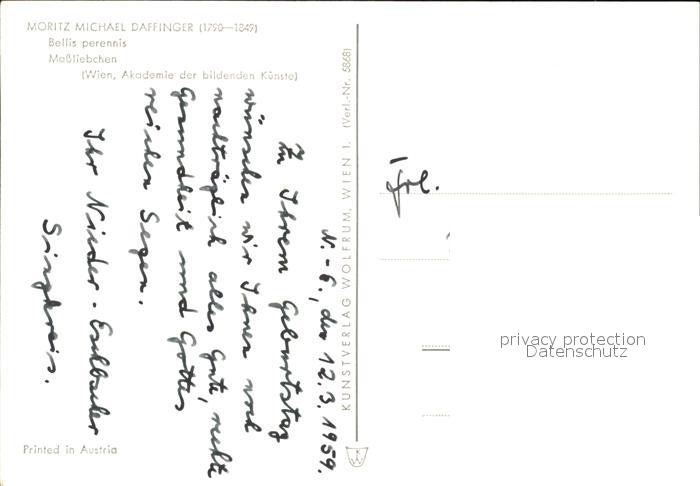 MORITZ MICHAEL DAFFINGER (1790—1849)
Bellis perennis
Maßliebchen
(Wien, Akademie der bildenden Künste)
N.-E., den 12.3.1959.
Zu Ihrem Geburtstag
wünschen wir Ihnen noch
nachträglich alles Gute, recht
Gesundheit und Gottes
reichen Segen.
Ihr Nieder-Eschbacher
Singkreis.
Printed in Austria
KUNSTVERLAG WOLFRUM, WIEN I. (Verl.-Nr. 5868)
Frl.
privacy protection
Datenschutz